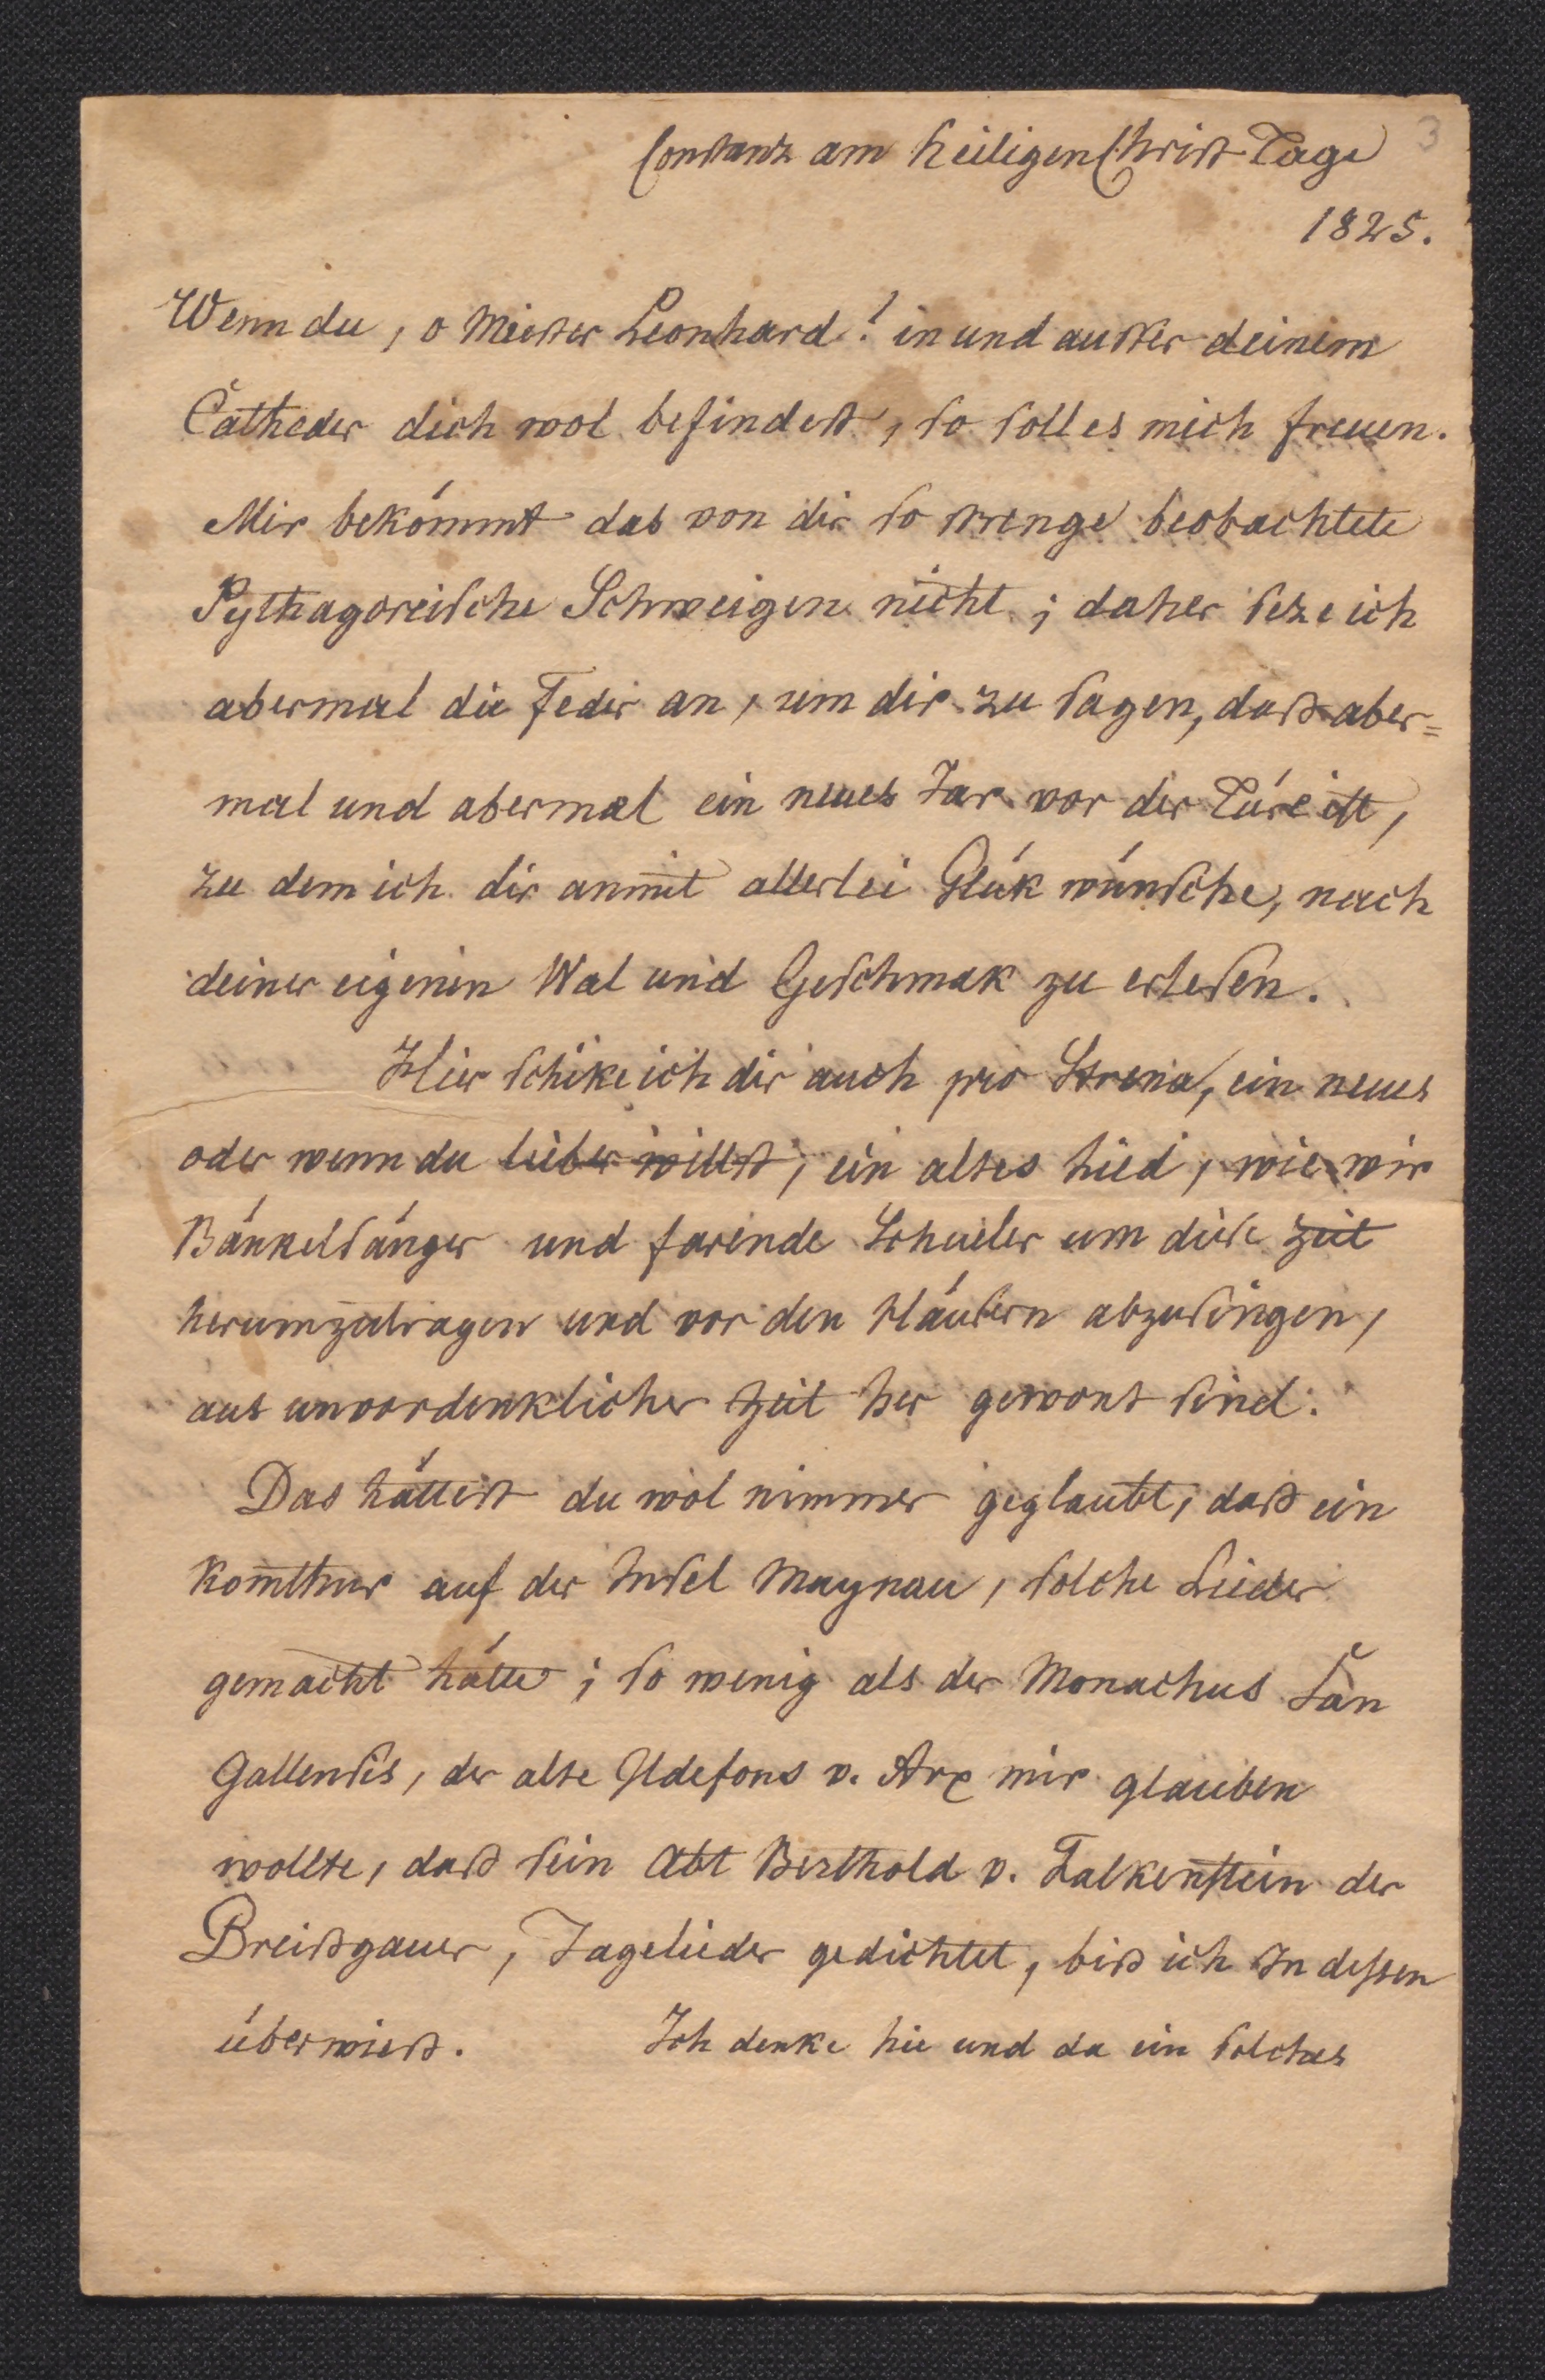 3
Constanz am heiligen Christ Tage
1825.
Wenn du, o Meister Leonhard! in und ausser deinem
Catheder dich wol befindest, so soll es mich freuen.
Mir bekömmt das von dir so strenge beobachtete
Pythagoreische Schweigen nicht; daher seze ich
abermal die Feder an, um dir zu sagen, daß aber=
mal und abermal ein neues Jar vor der Türe ist,
zu dem ich dir anmit allerlei Glük wünsche, nach
deiner eigenen Wal und Geschmak zu erlesen.
Hier schike ich dir auch pro Strena, ein neues
oder wenn du lieber willst, ein altes Lied, wie wir
Bänkelsänger und farende Schueler um diese Zeit
herumzutragen und vor den Häusern abzusingen,
aus unvordenklicher Zeit her gewont sind.
Das hättest du wol nimmer geglaubt, daß ein
Komthur auf der Insel Maynau, solche Lieder
gemacht hätte; so wenig als der Monachus San
Gallensis, der alte Ildefons v. Arx mir glauben
wollte, daß sein Abt Berthold v. Falkenstein der
Breißgauer, Tagelieder gedichtet, biß ich In dessen
überwieß. Ich denke hie und da ein solches